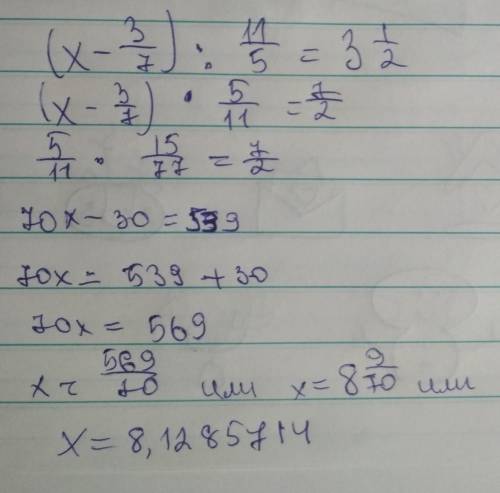 (x - 3/7) : 11/5 = 3 1/2
(x - 3/7) · 5/11 = 7/2
5/11 · 15/77 = 7/2
70x - 30 = 539
70x = 539 + 30
70x = 569
x = 569/70 или x = 8 9/70 или
x = 8,1285714